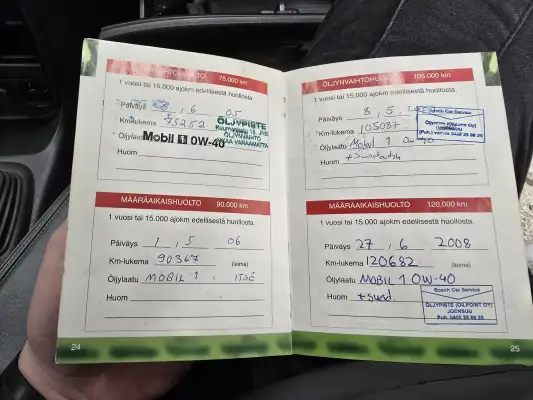 75.000 km
1 vuosi tai 15.000 ajokm edellisestä huollosta
Päiväys 6 05
Km-lukema 75252
ÖLJYPISTE
ÖLJYNVAIHTO
Öljylaatu Mobil 1 0W-40
Huom
MÄÄRÄAIKAISHUOLTO 90.000 km
1 vuosi tai 15.000 ajokm edellisestä huollosta.
Päiväys 1, 5 06
Km-lukema 90367 (leima)
Öljylaatu MOBIL 1. ITSE
Huom
24
ÖLJYNVAIHTOHUOLTO 105.000 km
1 vuosi tai 15.000 ajokm edellisestä huollosta.
Päiväys 8, 5.
Km-lukema 105037
Öljylaatu Mobil 1 0w-40
Huom +suodatin
Bosch Car Service
JOENSUU
MÄÄRÄAIKAISHUOLTO 120.000 km
1 vuosi tai 15.000 ajokm edellisestä huollosta.
Päiväys 27, 6 2008
Km-lukema 120682 (leima)
Öljylaatu MOBIL 1 0W-40
Huom +suod.
Bosch Car Service
ÖLJYPISTE (OILPOINT OY)
JOENSUU
25